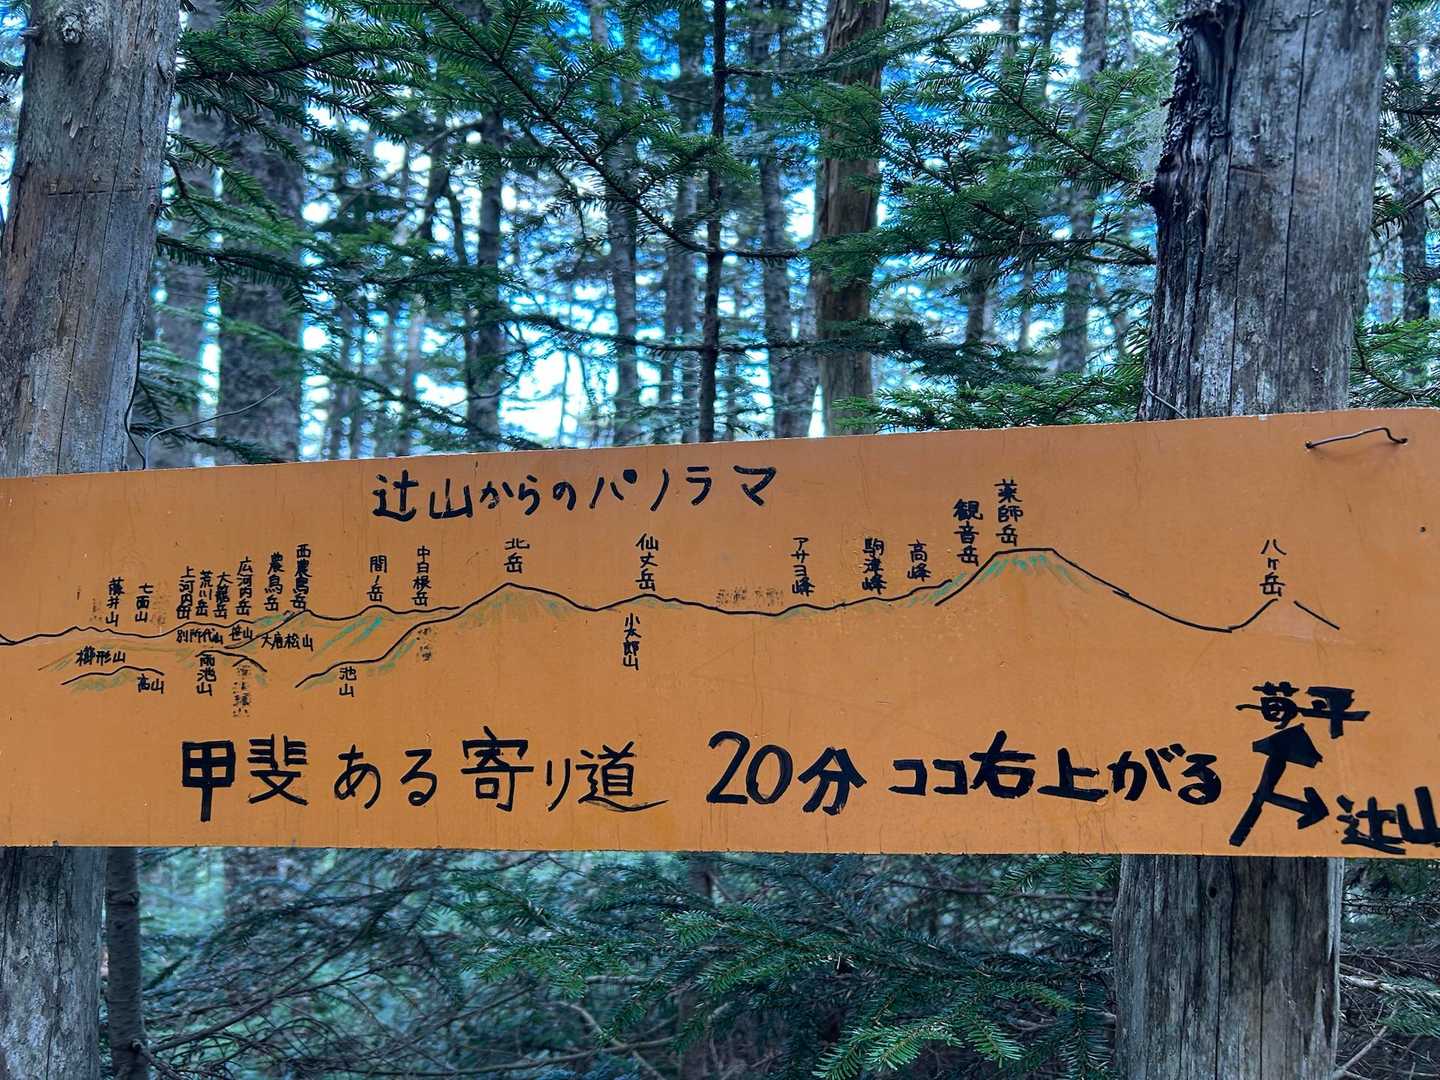 辻山からのパノラマ
藤井山
七面山
上河内岳
荒川岳
大籠岳
広河内岳
農鳥岳
西農鳥岳
間ノ岳
中白根岳
北岳
仙丈岳
アサヨ峰
駒津峰
高峰
観音岳
薬師岳
八ヶ岳
別所代山
笹山
大唐松山
櫛形山
高山
雨池山
池山
小太郎山
苺平
甲斐ある寄り道 20分 ココ右上がる
辻山